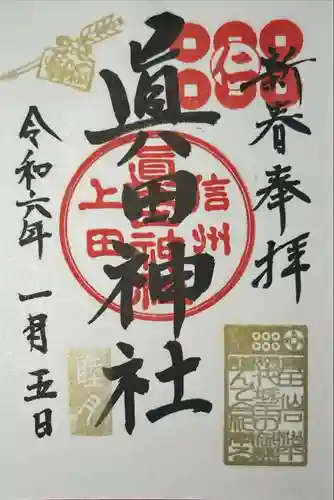 新春奉拝
仁
眞田神社
信州
眞田神社
上田
令和六年
一月五日
睦月